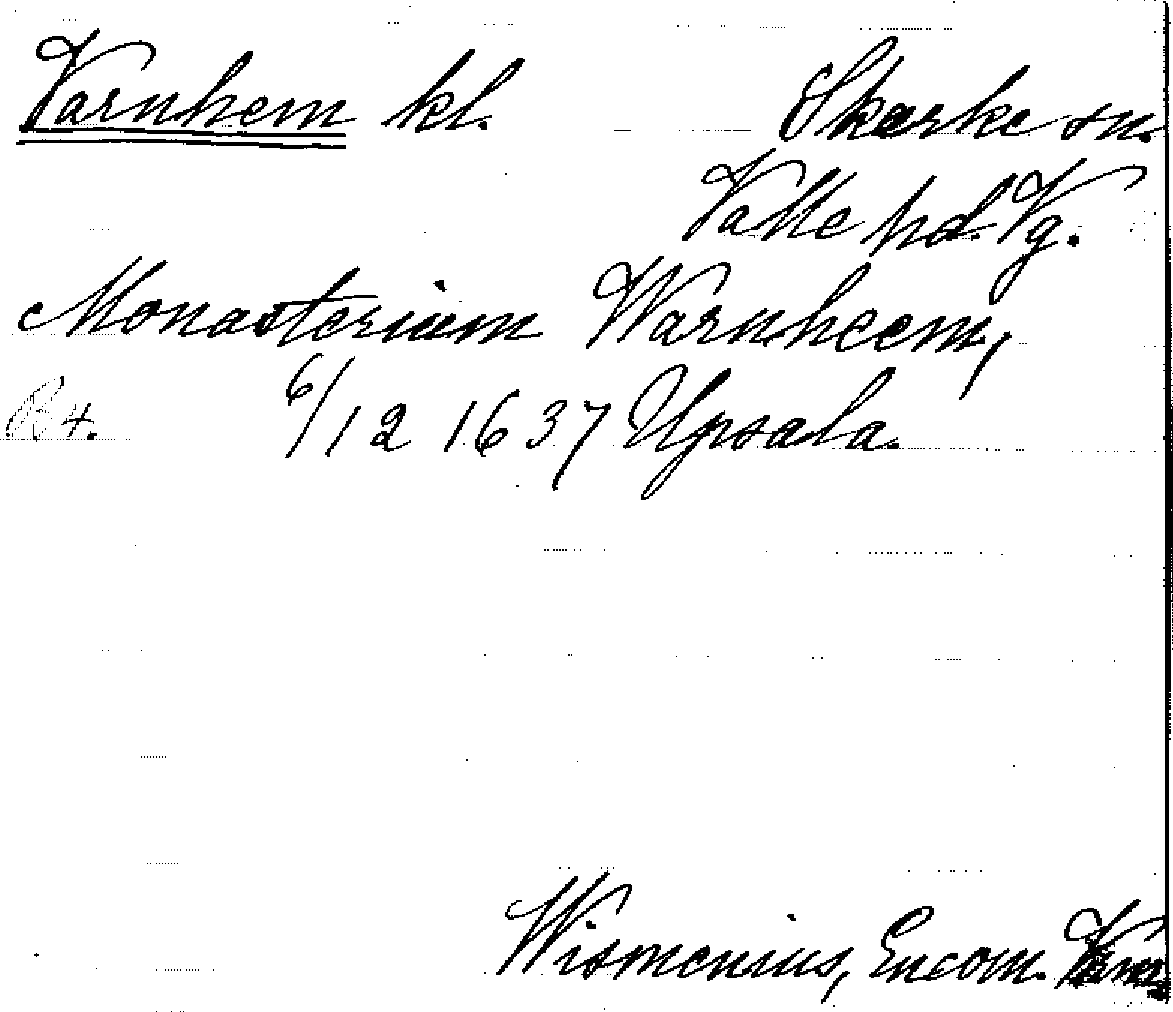 Varnhem kl. Skarke sn.
Valle hd. Vg.
Monasterium Warnheem,
B 4. 6/12 1637 Upsala.
Wismenius, Encom.